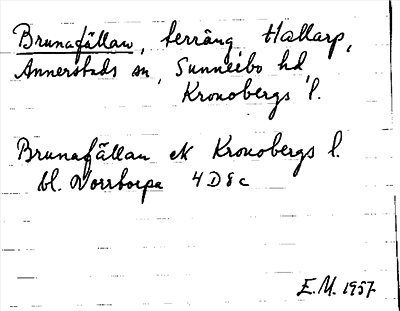 Brunafällan, terräng Hallarp,
Annerstads sn, Sunnerbo hd
Kronobergs l.
Brunafällan ek Kronobergs l.
bl. Norrtorpa 4D8c
E.M. 1957